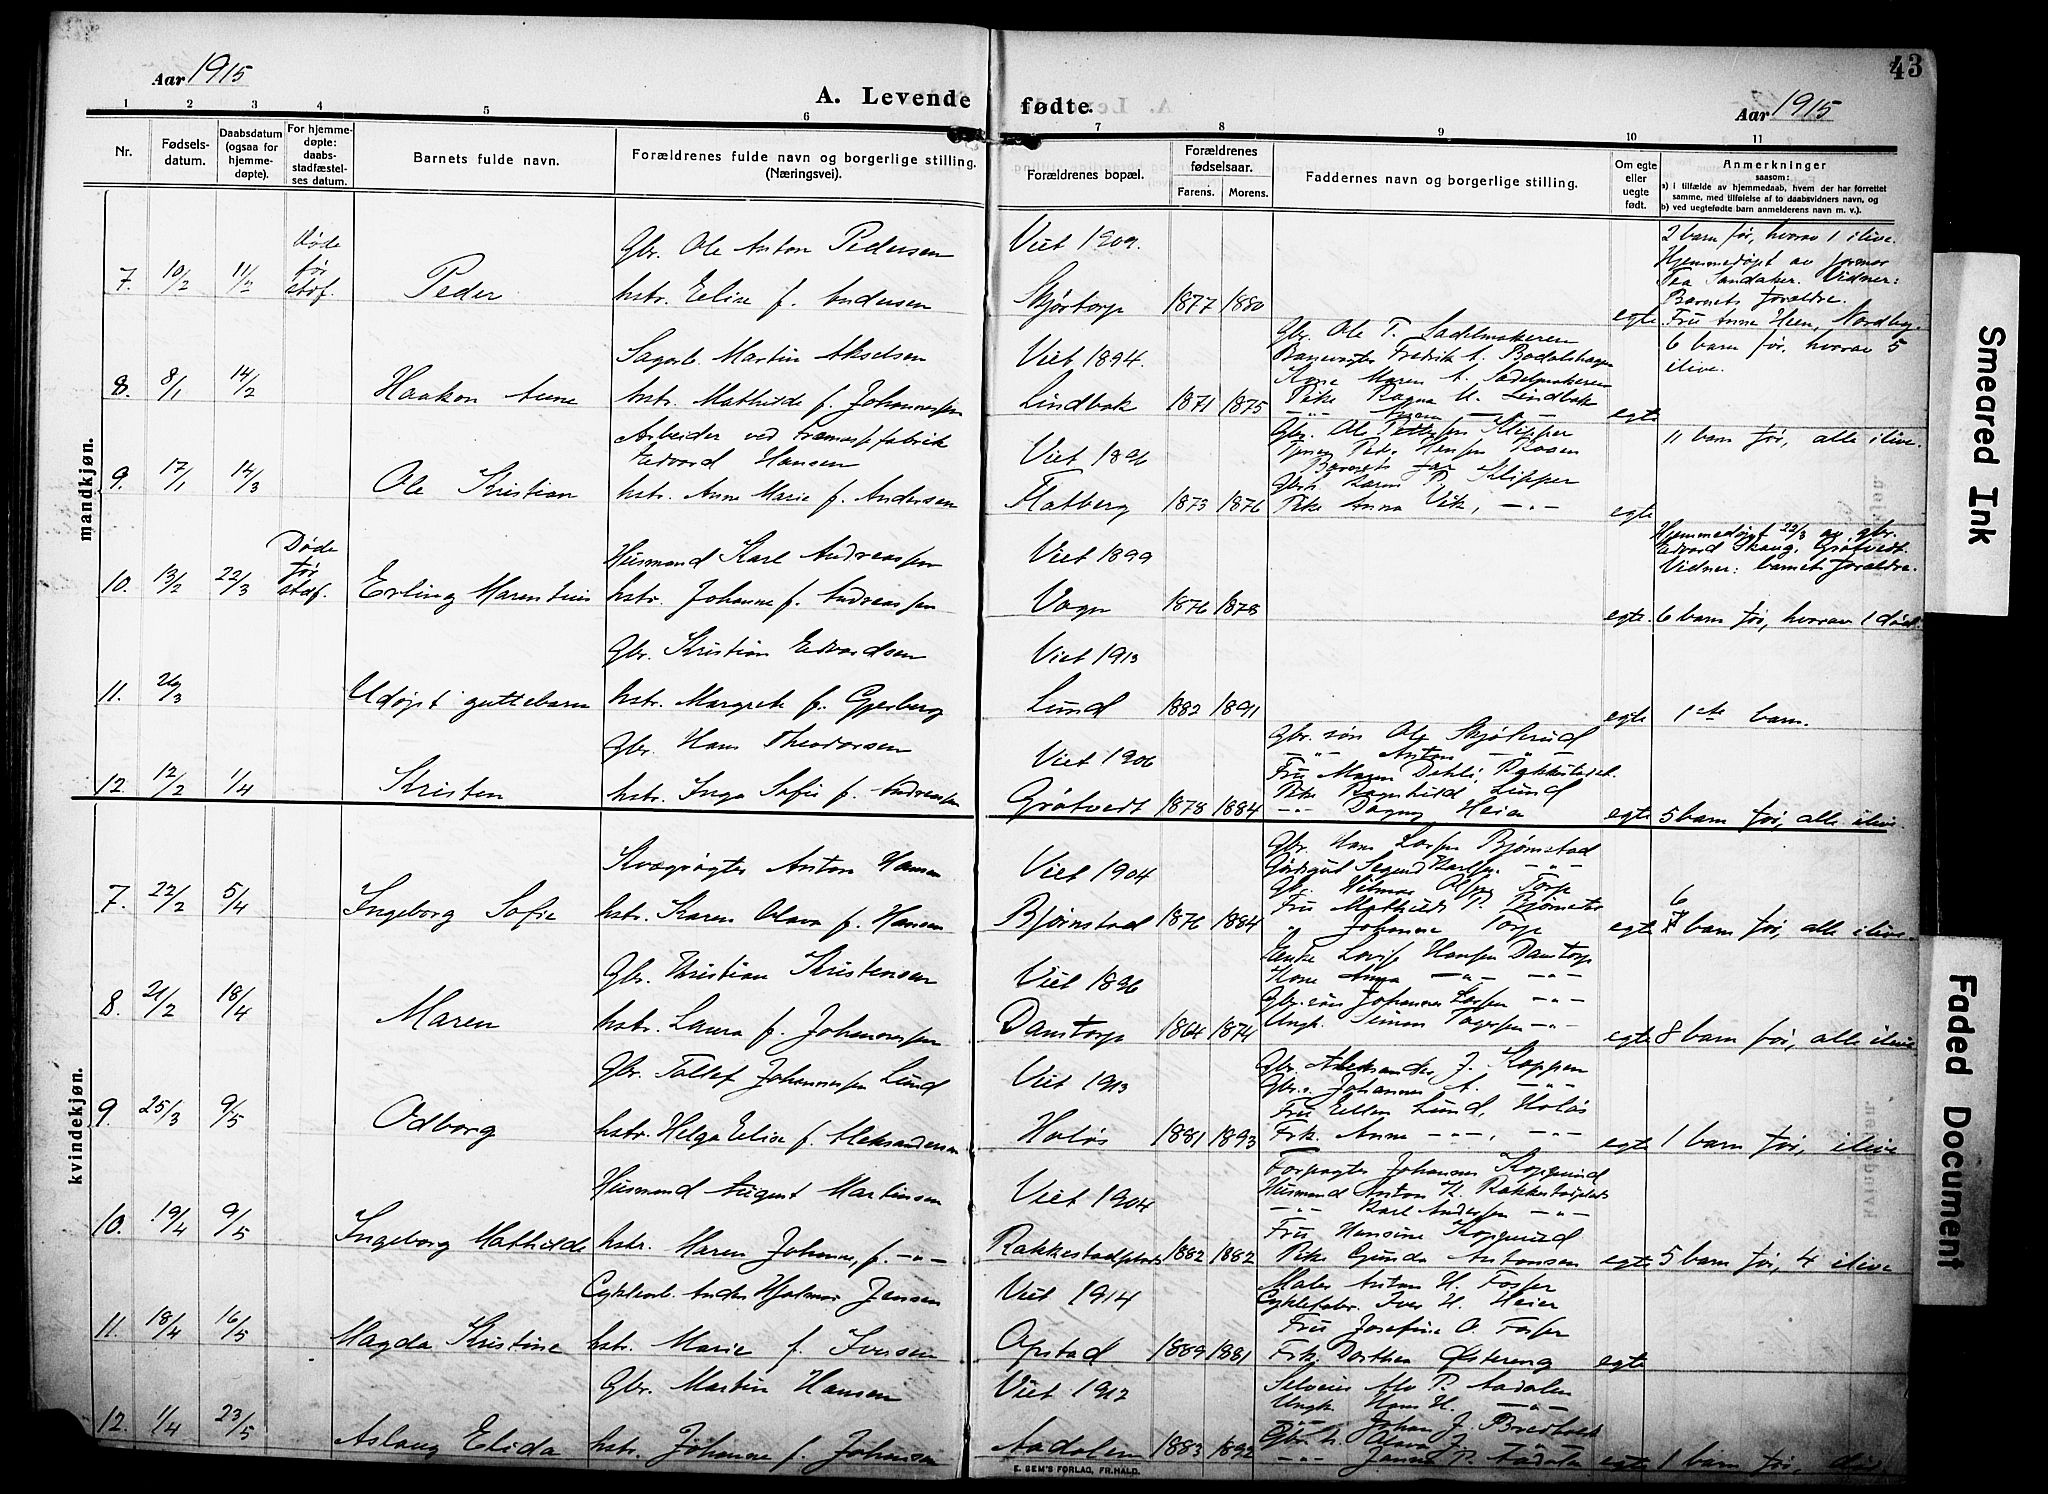 43
Aar 1915
A. Levende fødte.
Aar 1915
1 2 3 4 5 6 7 8 9 10 11
Nr.
Fødsels-
datum.
Daabsdatum
(ogsaa for
hjemme-
døpte).
For hjemme-
døpte:
daabs-
stadfæstel-
ses datum.
Barnets fulde navn.
Forældrenes fulde navn og borgerlige stilling.
(Næringsvei).
Forældrenes bopæl.
Forældrenes
fødselsaar.
Farens. Morens.
Faddernes navn og borgerlige stilling.
Om egte
eller
uegte
født.
Anmerkninger
saasom:
a) i tilfælde av hjemmedaab, hvem der har forrettet
samme, med tilføielse af to daabsvidners navn, og
b) ved uegtefødte barn anmelderens navn m. v.).
mandkjøn.
7. 10/2 11/2
Døde
før
stdf.
Peder
Gbr. Ole Anton Pedersen
hstr. Elise f. Andersen
Viet 1909.
Skjøstorp 1877 1880
egte
2 barn før, hvorav 1 ilive.
Hjemmedøpt av jormor
Tea Sandaker. Vidner:
Barnets foraldre.
Fru Anna Heen, Nordby.
8. 8/1 14/2
Haakon Arne
Sagarb. Martin Akselsen
hstr. Mathilde f. Johannessen
Viet 1894.
Lindbak 1871 1875
Gbr. Ole T. Sadelmakeren
Banevogter Fredrik A. Bodalshagen
Kone Maren A. Sadelmakeren
Pike Ragna M. Lindbak
egte
6 barn før, hvorav 5
ilive.
9. 17/1 14/3
Ole Kristian
Arbeider ved
Edvard Hansen
hstr. Anne Marie f. Andersen
Viet 1896
Flatberg 1873 1876
Gbr. Ole Pettersen Klipper
Barnets far
Pike Anna Vik, -"-
egte
11 barn før, alle ilive.
10. 13/2 22/3
Døde
før
stdf.
Erling Marentius
Husmand Karl Andreassen
hstr. Johanne f. Andreassen
Viet 1899
Vagn 1876 1878
egte.
Hjemmedøpt 22/3 av gbr.
Edvard Skaug, Grøtvedt.
Vidner: barnets foraldre.
6 barn før, hvorav 1 død.
11. 26/3
Udøpt guttebarn
Gbr. Kristian Edvardsen
hstr. Margrete f. Gjerberg
Viet 1913
Lund 1882 1891
egte
1ste barn.
12. 12/2 1/4
Kristen
Gbr. Hans Theodorsen
hstr. Inga Sofie f. Andreassen
Viet 1906
Grøtvedt 1878 1884
Gbr. søn Ole Skjøkrud
-"- Anton -"-
Fru Maren Dehli, Rakkestad.
Pike Ragnhild Lund
-"- Dagny Heier
egte
5 barn før, alle ilive.
kvindekjøn.
7. 22/2 5/4
Ingeborg Sofie
Kvægrøgter Anton Hansen
hstr. Karen Olava f. Hansen
Viet 1904
Bjørnstad 1876 1884
Gbr. Hans Larsen Bjørnstad
Gbr. Hilmar Olsen Torp
Fru Mathilde P. Bjørnstad
" Johanne Torp
egte
6
7 barn før, alle ilive.
8. 21/2 18/4
Maren
Gbr. Kristian Kristensen
hstr. Laura f. Johannessen
Viet 1896
Damtorp 1864 1874
Enke Lovise Hansen Damtorp
Kone Anna -"- -"-
Gbr. søn Johannes Larsen -"-
Ungk. Simon -"-
egte
8 barn før, alle ilive
9. 25/3 9/5
Odborg
Gbr. Tollef Johannessen Lund
hstr. Helga Elise f. Aleksandersen
Viet 1913
Holøs 1881 1893
Gbr. Aleksander J. Koppen
Gbr. Johannes A. -"-
Fru Ellen Lund, Holøs
Frk. Anne -"-, -"-
egte
1 barn før, ilive
10. 19/4 9/5
Ingeborg Mathilde
Husmand August Martinsen
hstr. Maren Johanne, f. -"-
Viet 1904
Rakkestadplads 1882 1882
Forpagter Johannes Kopperud
Husmand Anton K. Rakkestadplads
-"- Karl Andersen -"-
Fru Hansine Kopperud
Pike Gunda Antonsen
egte
5 barn før, 4 ilive
11. 18/4 16/5
Magda Kristine
Cyklearb. Anders Hjalmar Jensen
hstr. Marie f. Iversen
Viet 1914
Opstad 1889 1881
Maler Anton H. Fosser
Cyklefabr. Iver H. Heier
Fru Josefine O. Fosser
Frk. Dorthea Østereng
egte
12. 1/4 23/5
Aslaug Elida
Gbr. Martin Hansen
hstr. Johanne f. Johansen
Viet 1912
Aadalen 1883 1892
Selveier Alv P. Aadalen
Ungk. Hans H. -"-
-"- Johan J. Bredholt
egte
1 barn før,
E. SEM'S FORLAG, FR.HALD.
Smeared Ink
Faded Document